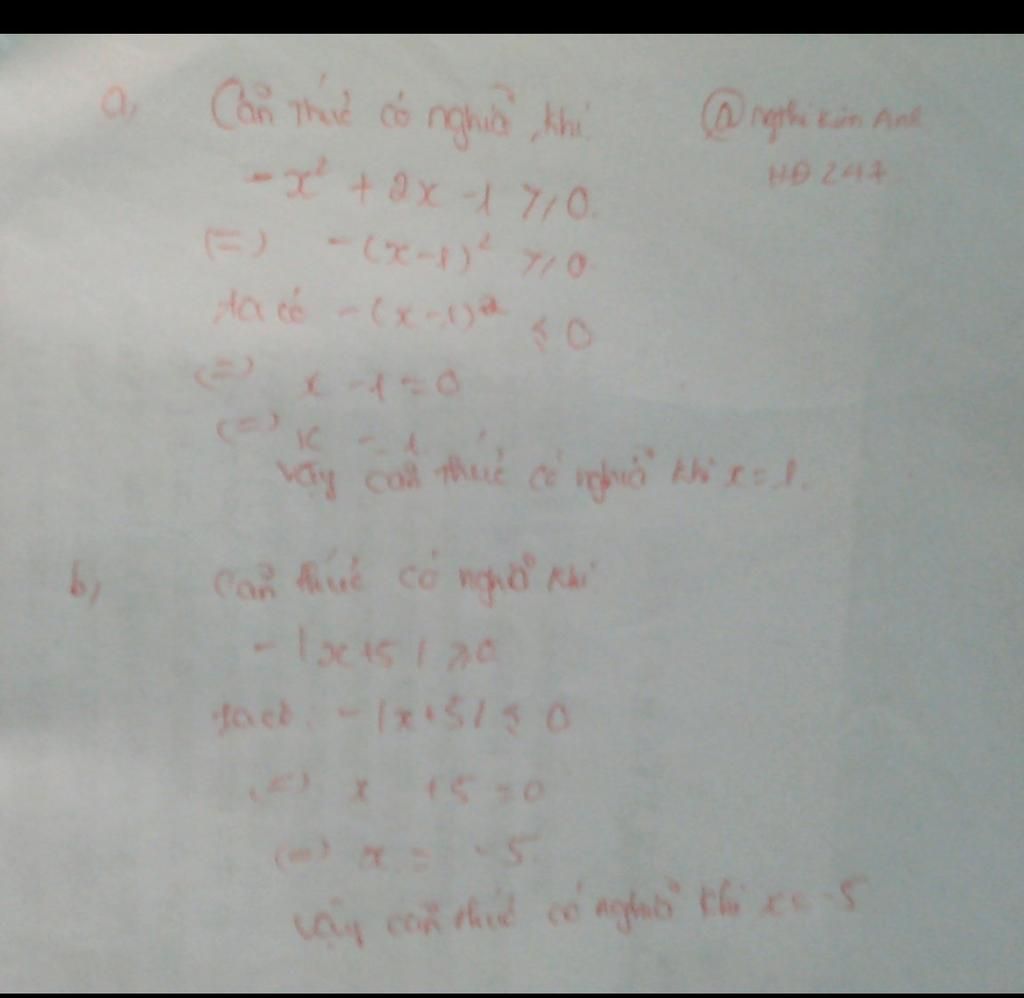 a, Căn thức có nghĩa khi
@nghi kim Anh
HĐ 247
-x² + 2x -1 ≥ 0.
(=) -(x-1)² ≥ 0
ta có -(x-1)² ≤ 0
(=) x -1 = 0
(=) x = 1
Vậy căn thức có nghĩa khi x = 1.
b, Căn thức có nghĩa khi
-|x+5| ≥ 0
ta có: -|x+5| ≤ 0
(=) x +5 = 0
(=) x = -5
Vậy căn thức có nghĩa khi x = -5